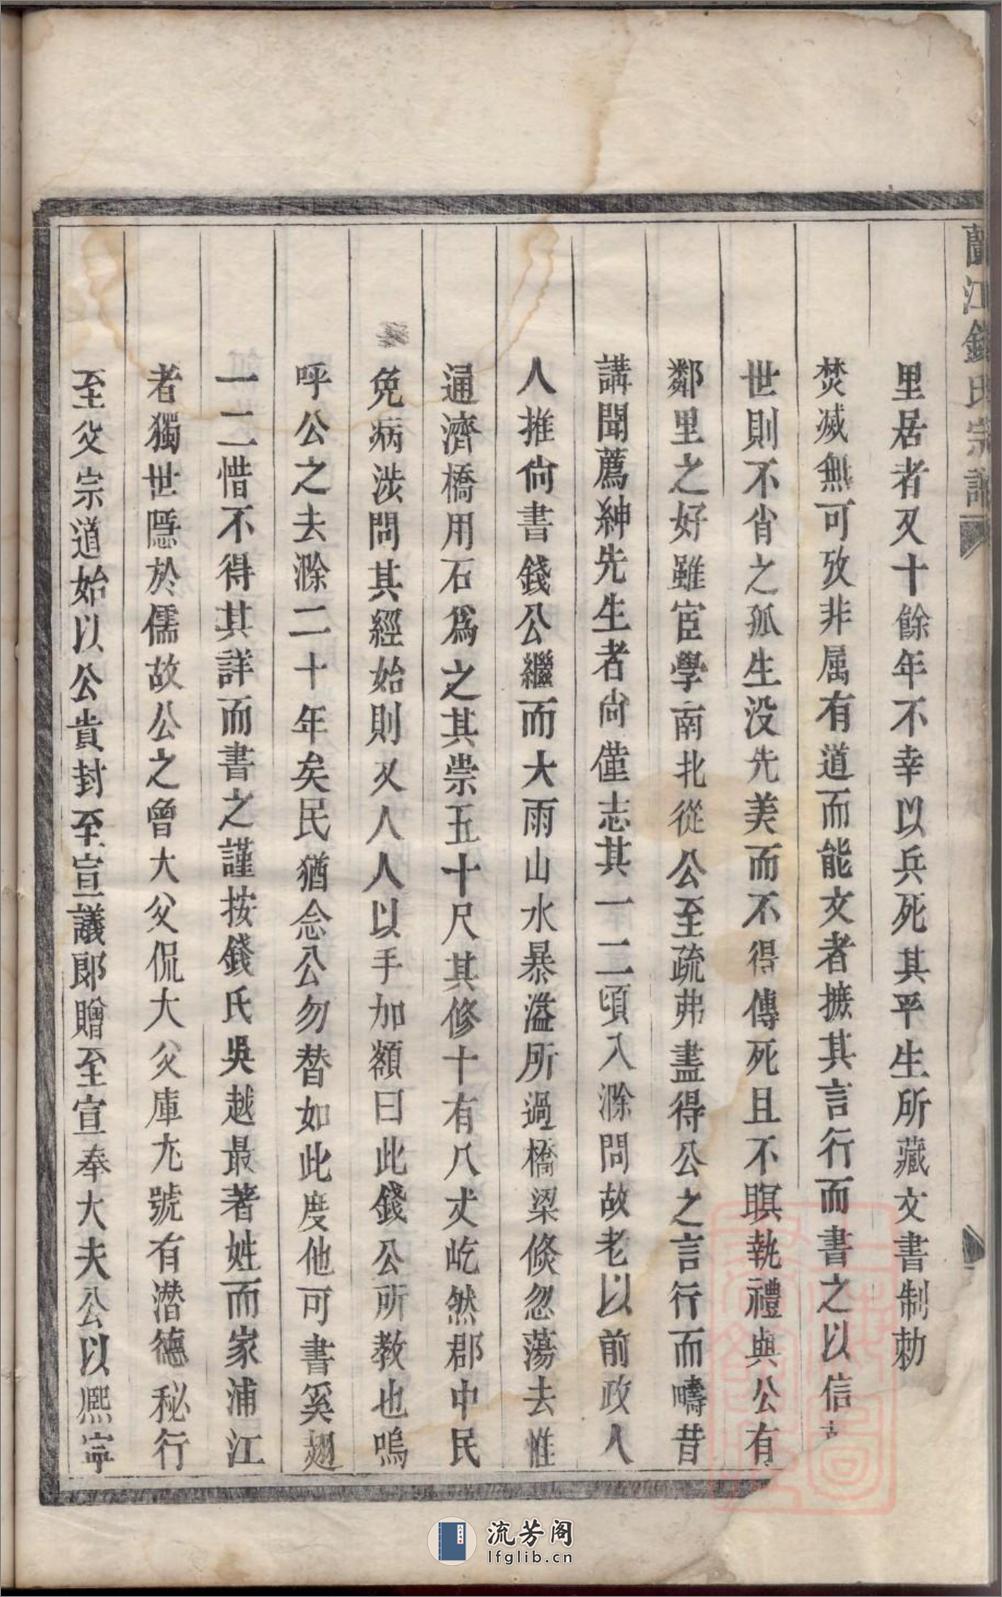 蘭江錢氏宗譜
里居者又十餘年不幸以兵死其平生所藏文書制勅
焚滅無可攷非属有道而能文者摭其言行而書之以信
世則不省之孤生没先美而不得傳死且不瞑執禮與公有
鄰里之好雖宦學南北從公至疏弗盡得公之言行而疇昔
講聞薦紳先生者尚僅志其一二頃入滁問故老以前政人
人推尚書錢公繼而大雨山水暴溢所過橋梁倐忽蕩去惟
通濟橋用石爲之其崇五十尺其修十有八丈屹然郡中民
免病涉問其經始則又人人以手加額曰此錢公所教也嗚
呼公之去滁二十年矣民猶念公勿替如此度他可書奚翅
一二惜不得其詳而書之謹按錢氏吳越最著姓而家浦江
者獨世隱於儒故公之曾大父侃大父庫尢號有潜德秘行
至父宗道始以公貴封至宣議郎贈至宣奉大夫公以熈寜
流芳阁
lfglib.cn